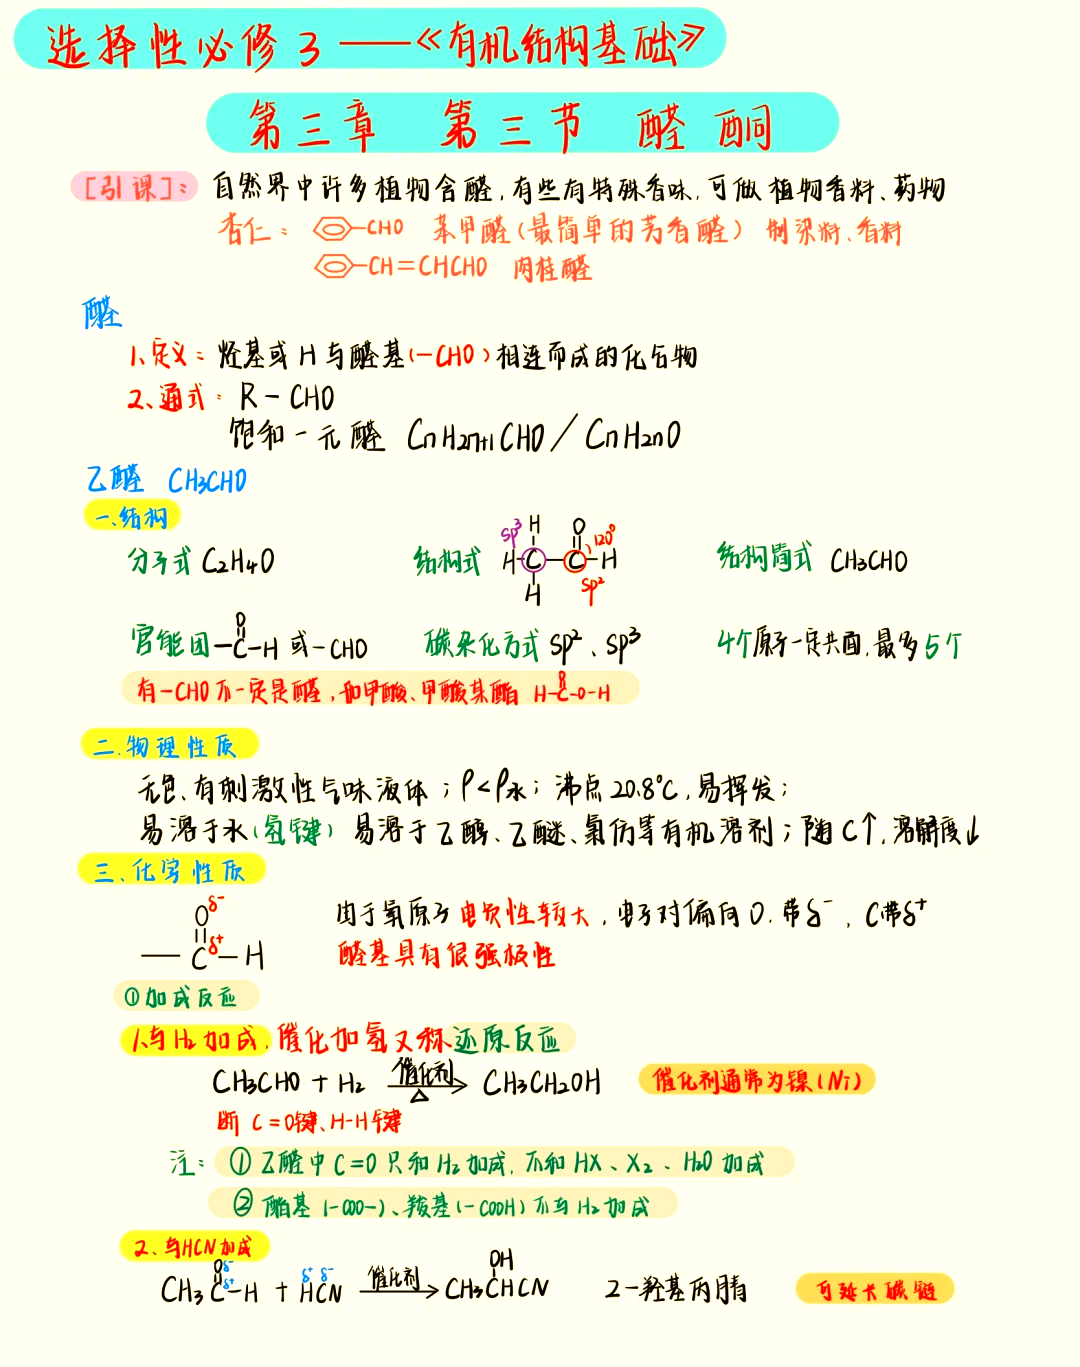 选择性必修3——《有机结构基础》
第三章 第三节 醛 酮
[引课]: 自然界中许多植物含醛,有些有特殊香味,可做植物香料、药物
杏仁: -CHO 苯甲醛(最简单的芳香醛) 制染料、香料
-CH=CHCHO 肉桂醛
醛
1、定义: 烃基或H与醛基(-CHO)相连而成的化合物
2、通式: R-CHO
饱和一元醛 CnH2n+1CHO / CnH2nO
乙醛 CH3CHO
一、结构
分子式 C2H4O 结构式 sp³ H H-C-C-H H O 120° sp² 结构简式 CH3CHO
官能团 -C-H O 或 -CHO 碳杂化方式 sp²、sp³ 4个原子一定共面,最多5个
有-CHO不一定是醛,如甲酸、甲酸某酯 H-C-O-H O
二.物理性质
无色、有刺激性气味液体;ρ<ρ水;沸点20.8°C,易挥发;
易溶于水(氢键) 易溶于乙醇、乙醚、氯仿等有机溶剂;随C↑,溶解度↓
三、化学性质
O δ⁻ C δ⁺ - H 由于氧原子电负性较大,电子对偏向O.带δ⁻,C带δ⁺
醛基具有很强极性
①加成反应
1.与H2加成,催化加氢又称还原反应
CH3CHO + H2 催化剂 △ → CH3CH2OH 催化剂通常为镍(Ni)
断 C=O键、H-H键
注: ①乙醛中C=O只和H2加成,不和HX、X2、H2O加成
②酯基(-COO-)、羧基(-COOH)不与H2加成
2、与HCN加成
CH3C-H O δ⁻ δ⁺ + HCN δ⁺ δ⁻ 催化剂 → CH3CHCN OH 2-羟基丙腈 可延长碳链